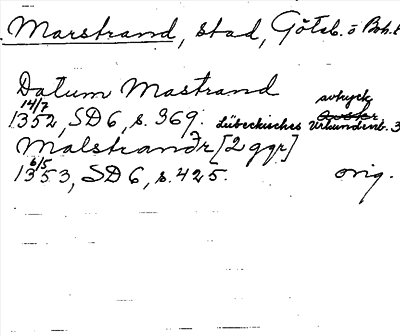 Marstrand, stad, Göteb. o Boh. l
Datum Mastrand
14/7 avtryck
1352, SD 6, s. 369. Lübeckisches Urkundenb. 3
Malstrandr [2 ggr]
6/5
1353, SD 6, s. 425. orig.